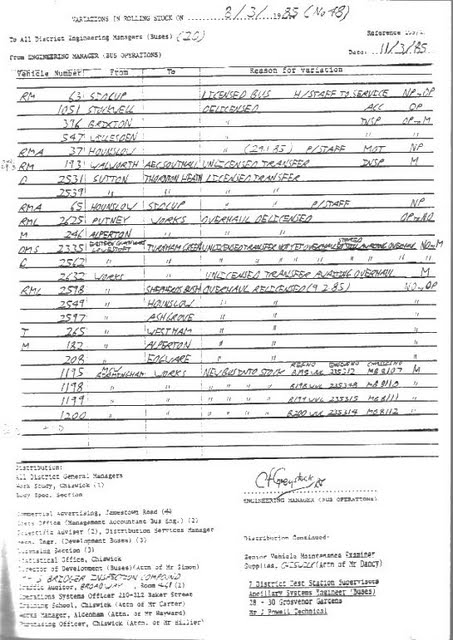 VARIATIONS IN ROLLING STOCK ON 2/3/1985 (No 43)
To All District Engineering Managers (Buses) (20)
Reference
from ENGINEERING MANAGER (BUS OPERATIONS)
Date: 11/3/85
Vehicle Number From To Reason for variation
RM 63 SIDCUP LICENSED BUS H/STAFF TO SERVICE NP→OP
1051 STOCKWELL DELICENSED ACC OP
396 BRIXTON " INSP OP→M
347 WILLESDEN " " "
RMA 37 HOUNSLOW " (29.1.85) P/STAFF MOT NP
RM 193 WALWORTH AEC SOUTHALL UNLICENSED TRANSFER INSP M
D 2531 SUTTON THORNTON HEATH LICENSED TRANSFER
2539 " " "
RMA 65 HOUNSLOW SIDCUP " " P/STAFF NP
RML 2625 PUTNEY WORKS OVERHAUL DELICENSED OP→NO
M 246 ALPERTON " " " "
DMS 2335 LOWESTOFT TURNHAM GREEN UNLICENSED TRANSFER NOT YET OVERHAULED STORED AWAITING OVERHAUL NO→M
2562 " " " " " " " " " "
2632 WORKS UNLICENSED TRANSFER AWAITING OVERHAUL M
RML 2598 " SHEPHERDS BUSH OVERHAUL RELICENSED (9 2 85) NO→OP
2549 " HOUNSLOW " " "
2597 " ASH GROVE " " "
T 265 " WEST HAM " " "
M 182 " ALPERTON " " "
208 " EDGWARE " " "
1195 MCW BIRMINGHAM WORKS NEW BUS INTO STOCK M
1198 " " " " " " B198 WUL MB8110 "
1199 " " " " " " B199 WUL 235315 MB8111 "
1200 " " " " " " B200 WUL 235314 MB8112 "
Distribution:
All District General Managers
Work Study, Chiswick (1)
Body Spec. Section
Commercial Advertising, Jamestown Road
Officer (Management Accountant Bus Eng.) (2)
Scientific Adviser (2), Distribution Services Manager
Engr. (Development Buses) (3)
Licensing Section (3)
Statistical Office, Chiswick
Director of Development (Buses)(Attn of Mr Simon)
BRIDGER INSPECTION COMPOUND
Traffic Auditor, BROADWAY - Room 47 (2)
Operations Systems Officer 210-212 Baker Street
Training School, Chiswick (Attn of Mr Carter)
Works Manager, Aldenham (Attn of Mr Hayward)
Purchasing Officer, Chiswick (Attn. of Mr Hillier)
ENGINEERING MANAGER (BUS OPERATIONS)
Distribution Continued:
Senior Vehicle Maintenance Examiner
Supplies, CHISWICK (Attn of Mr Dancy)
7 District Test Station Supervisors
Ancillary Systems Engineer (Buses)
28 - 30 Grosvenor Gardens
Mr J Powell Technical